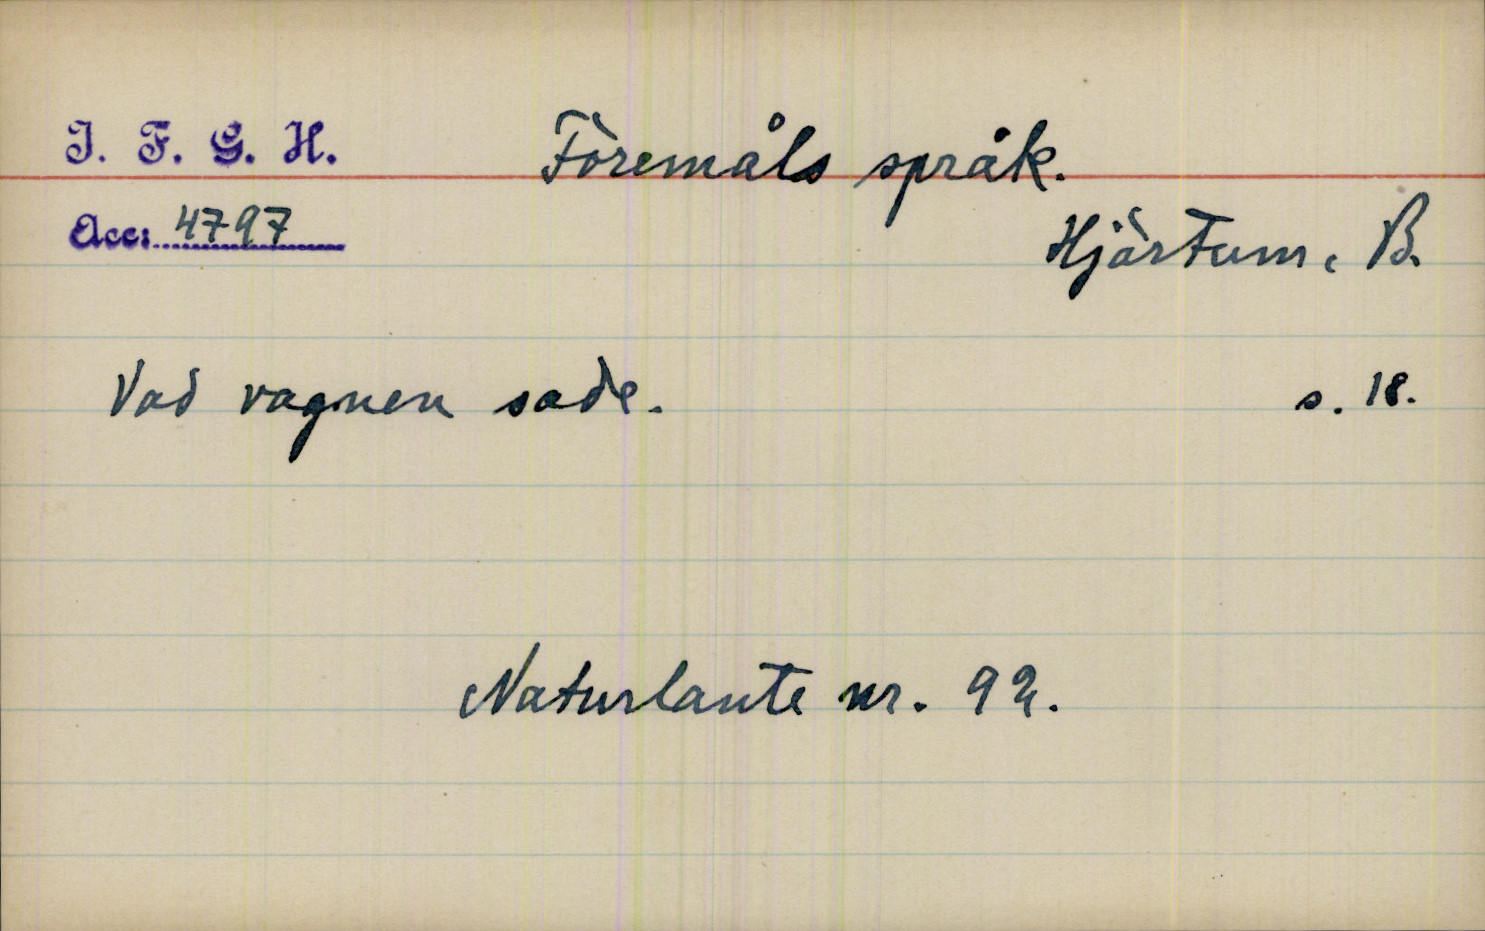 I. F. G. H.
Föremåls språk.
Acc: 4797
Hjärtum. B.
Vad vagnen sade. s. 18.
Naturlaute nr. 92.